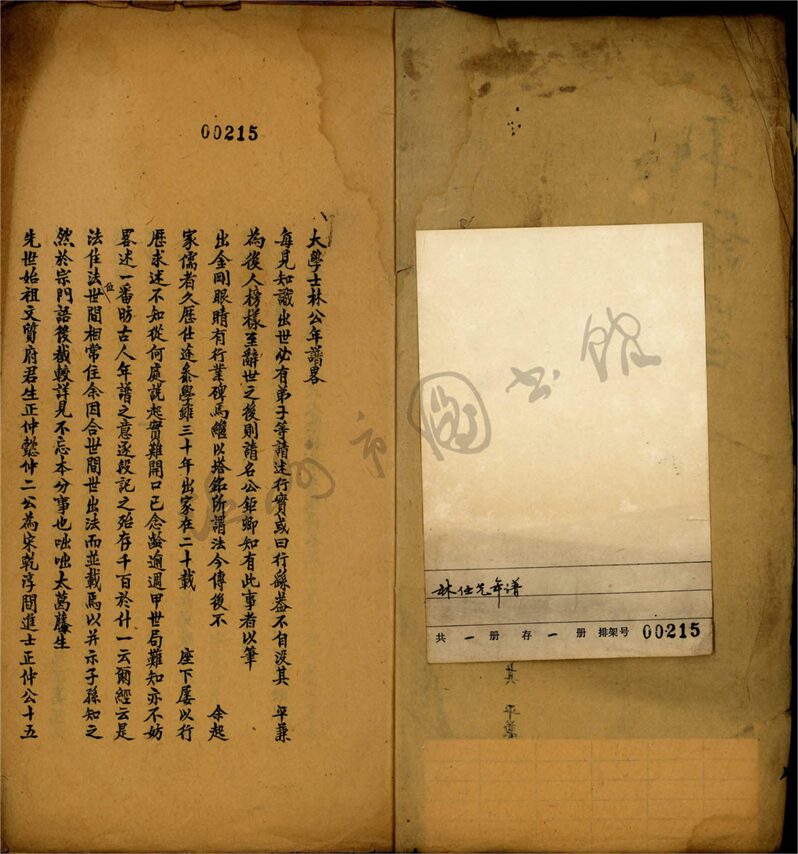 00215
大學士林公年譜畧
每見知識出世必有弟子等請述行實或曰行繇盖不自沒其 平蕪
為後人榜樣至辭世之後則請名公鉅卿知有此事者以筆
出金剛眼睛有行業碑焉繼以塔銘所謂法今傳後不 余起
家儒者久歷仕途叅學雖三十年出家在二十載 座下屡以行
歷求述不知從何處說起實難開口已念齡逾週甲世局難知亦不妨
畧述一番昉古人年譜之意逐段記之殆存千百於什一云爾經云是
法住法位世間相常住余因合世間世出法而並載焉以并示子孫知之
然於宗門語後截較詳見不忘本分事也咄咄太葛藤生
先世始祖文質府君生正仲懿仲二公為宋乾淳間進士正仲公十五
市圖书館
年譜
共 一 册 存 一 册 排架号 00215
平蕪